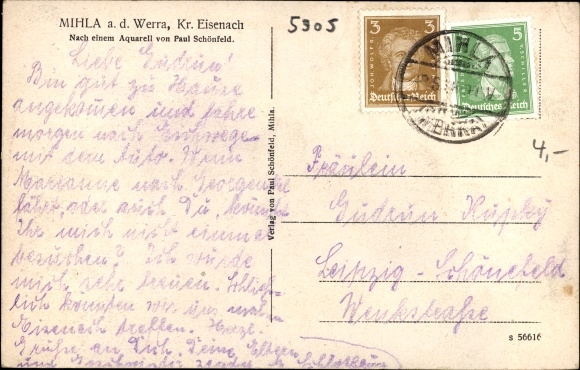 MIHLA a. d. Werra, Kr. Eisenach
Nach einem Aquarell von Paul Schönfeld.
5905
Liebe Gudrun!
Bin gut zu Hause
angekommen und fahre
morgen nach
mit dem Auto. Wenn
Marianne nach
fährt, oder auch Du, könnt
Ihr mich nicht einmal
besuchen? Ich würde
mich sehr freuen. Schließ-
lich könnten wir uns mal in
Eisenach treffen. Herzl.
Grüße an Dich, Deine Eltern
und Geschwister sendet
Verlag von Paul Schönfeld, Mihla.
3 3
JOH. WOLFG.
Deutsches Reich
5
F. v. SCHILLER
Deutsches Reich
MIHLA
(WERRA)
4,-
Fräulein
Gudrun
Leipzig-Schönefeld
s 56616